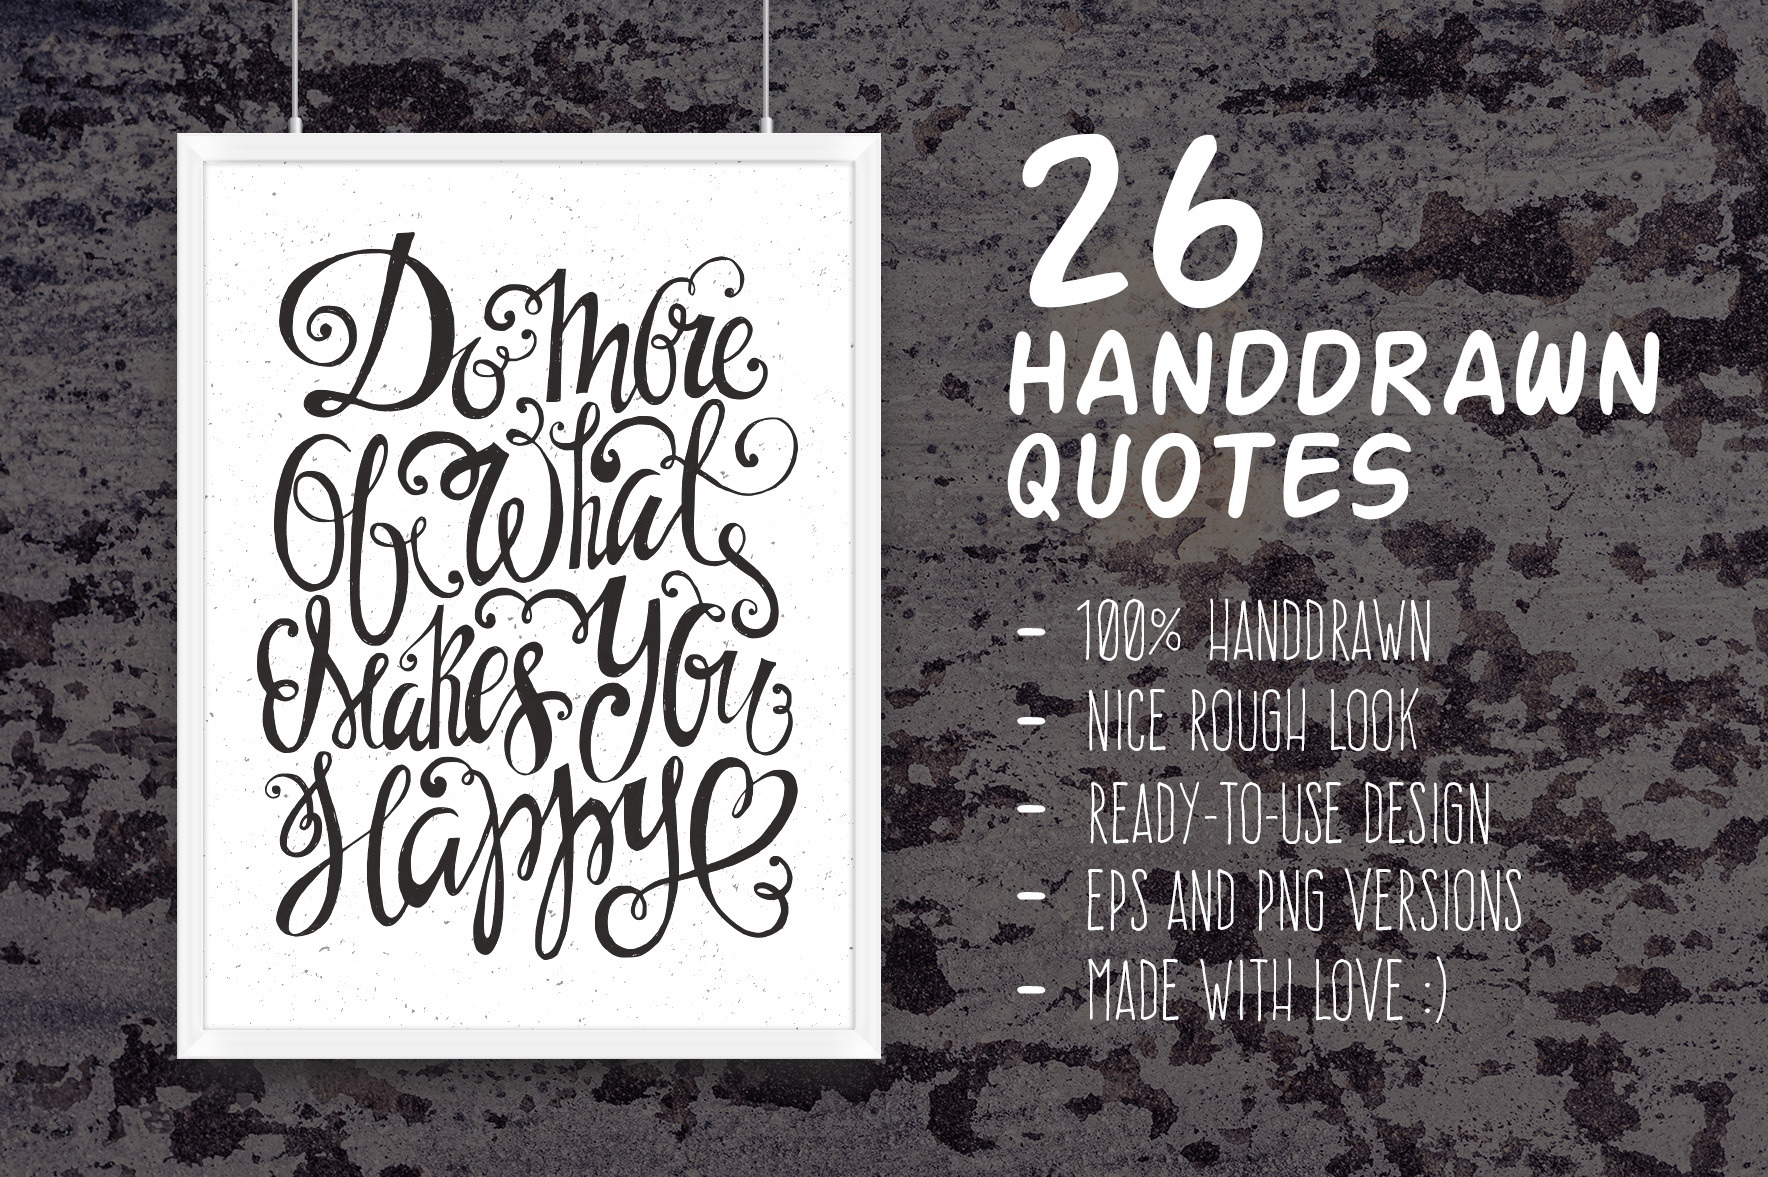 Do more
Of What
Makes You
Happy
26
HANDDRAWN
QUOTES
- 100% HANDDRAWN
- NICE ROUGH LOOK
- READY-TO-USE DESIGN
- EPS AND PNG VERSIONS
- MADE WITH LOVE :)